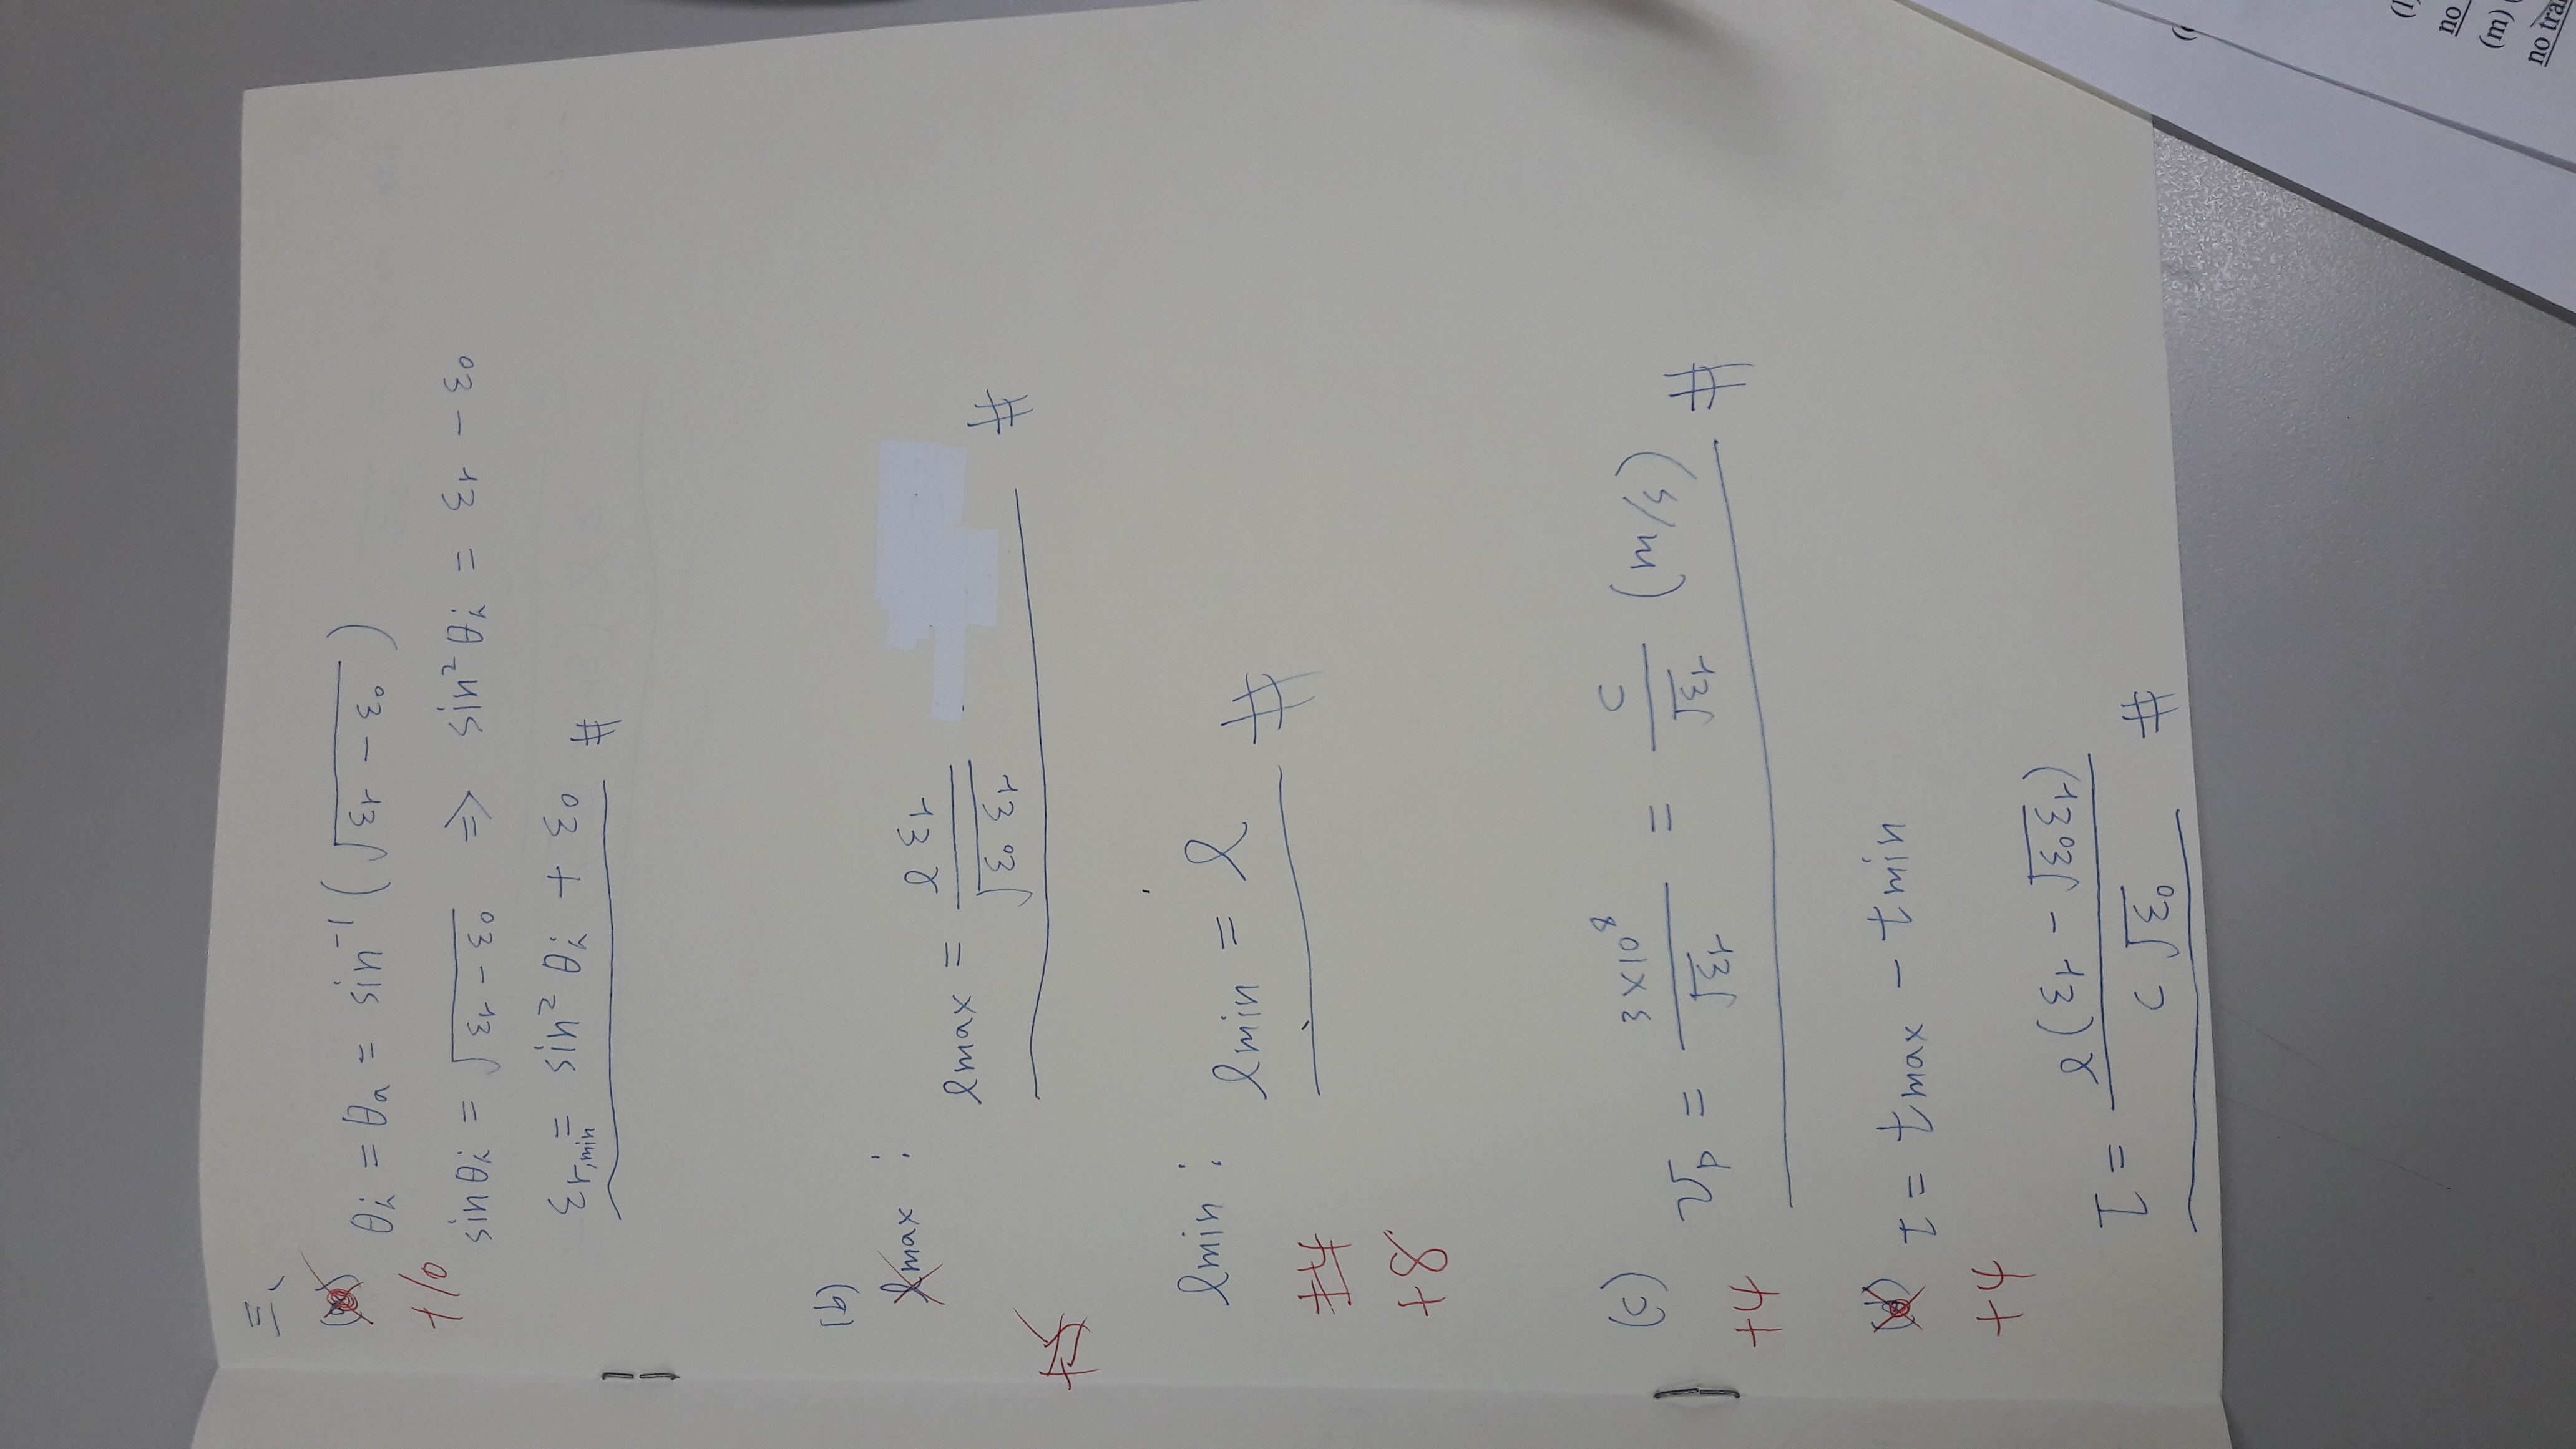 三、
(a) θi = θa = sin⁻¹(√(εr − ε0))
+10
sinθi = √(εr − ε0) ⇒ sin²θi = εr − ε0
εr,min = sin²θi + ε0 #
(b)
lmax :
lmax = l εr / √(ε0 εr) #
lmin : lmin = l #
+4
+8
(c) vp = 3×10⁸ / √εr = c / √εr (m/s) #
+4
(d) τ = tmax − tmin
+4
τ = l(εr − √(ε0εr)) / c√ε0 #
(m)
no